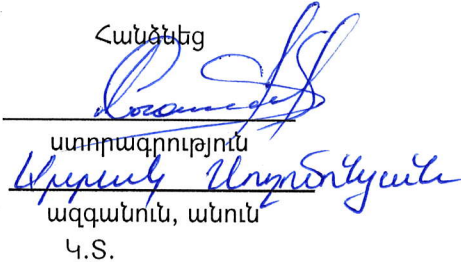 Հանձնեց
ստորագրություն
Արրակ Սողոմոնյան
ազգանուն, անուն
Կ.Տ.